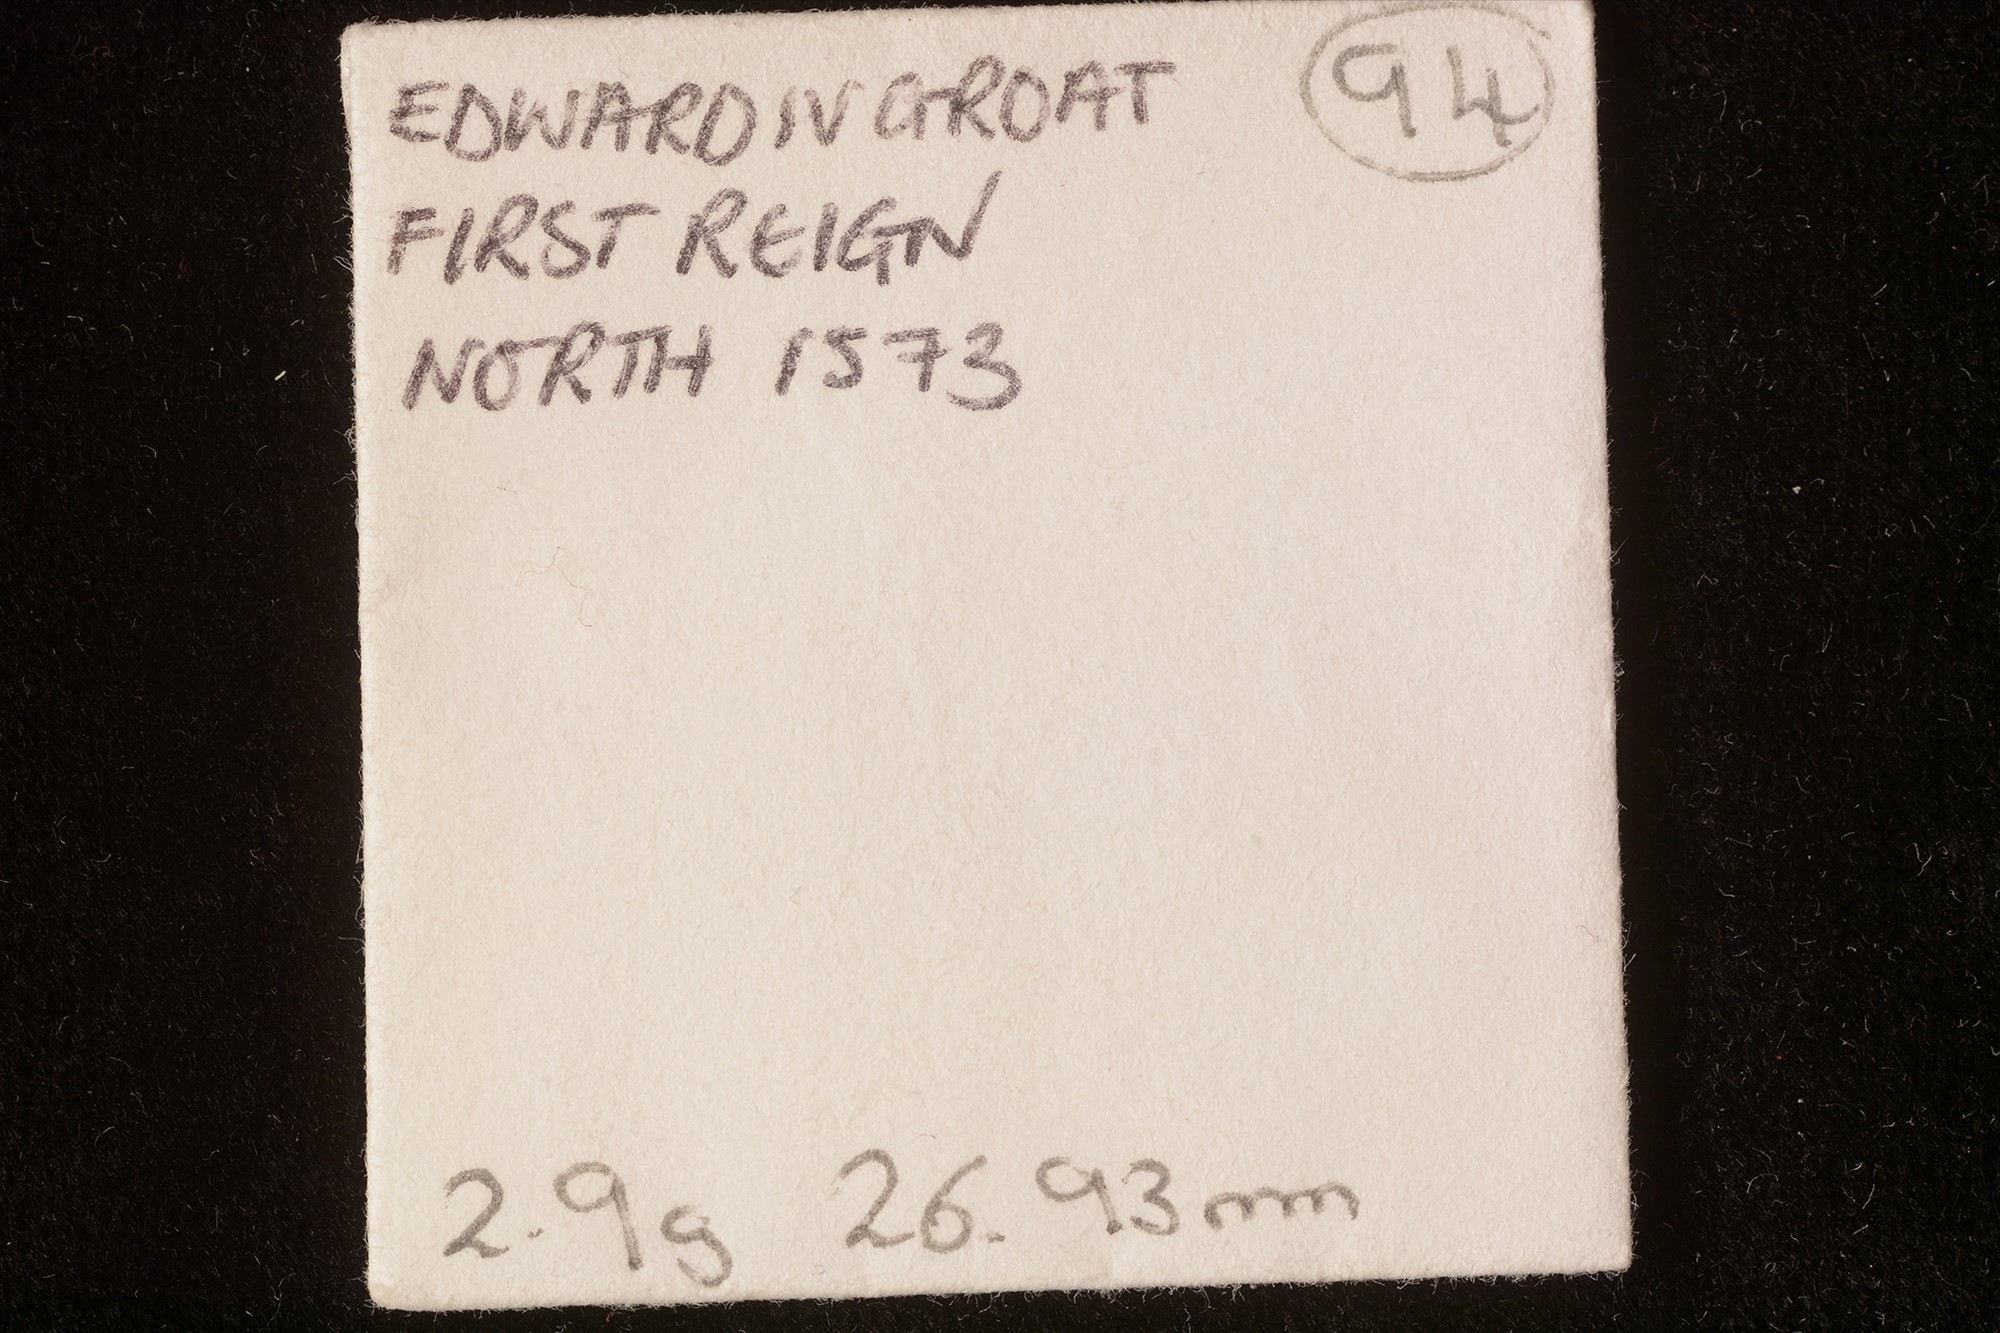 EDWARD IV GROAT
94
FIRST REIGN
NORTH 1573
2.9g 26.93mm